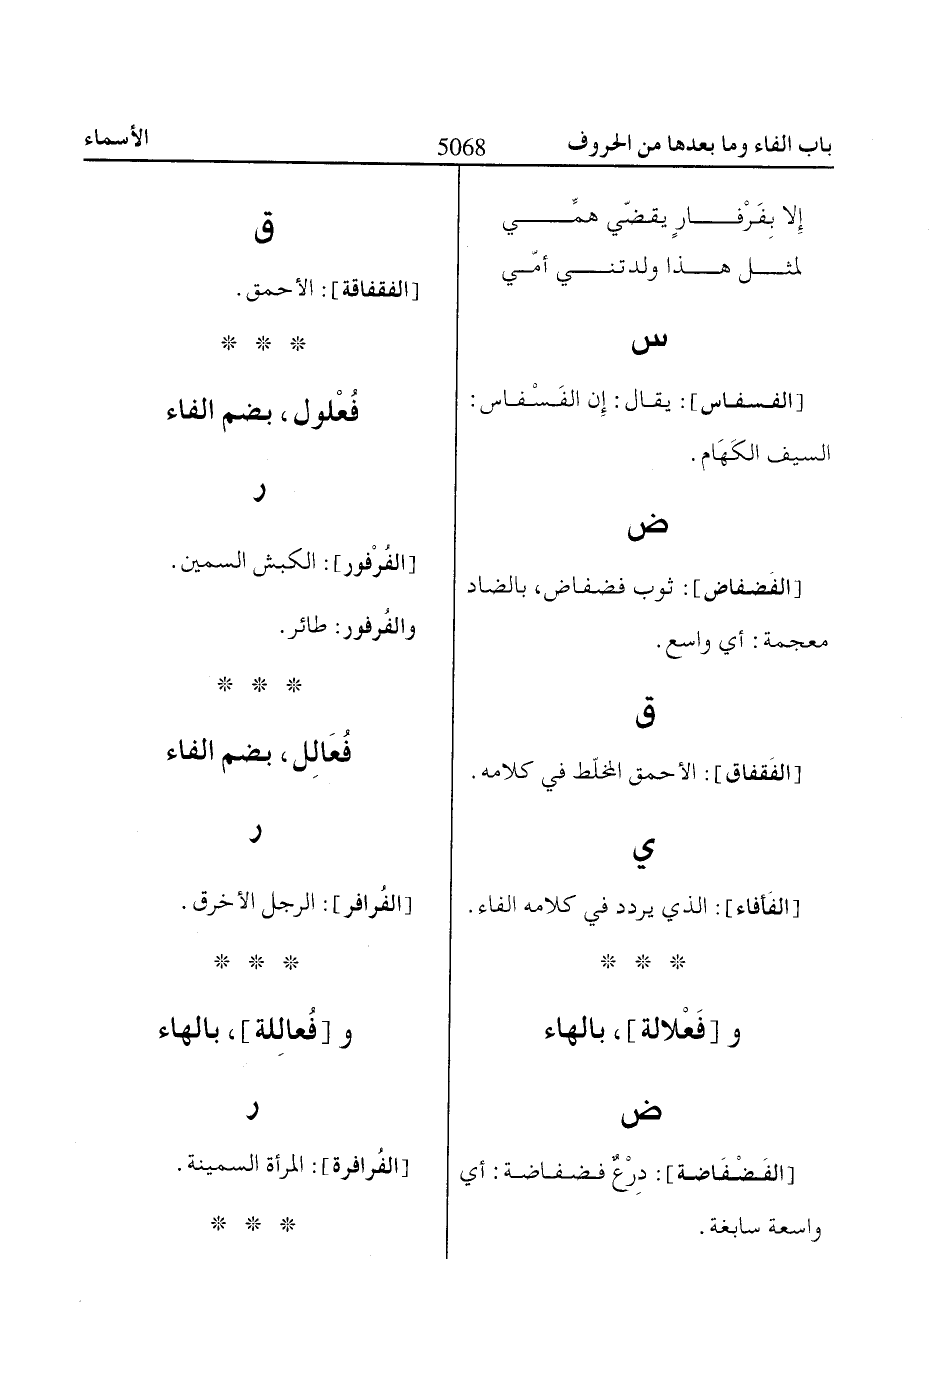 باب الفاء وما بعدها من الحروف
5068
الأسماء
إلا بِفَرْفـــــارٍ يقـضّي همِّـــــــي
لمثـــل هـــذا ولدتنـــــي أمّـي
س
[الفـسـفـاس]: يقـال: إن الفَـسْـفـاس:
السيف الكَهَام.
ض
[الفَضفاض]: ثوب فضفاض، بالضاد
معجمة: أي واسع.
ق
[الفَقفاق]: الأحمق المخلّط في كلامه.
ي
[الفَأفاء]: الذي يردد في كلامه الفاء.
* * *
و [فَعْلالة]، بالهاء
ض
[الفَـضْـفَاضـة]: دِرْعٌ فـضـفـاضـة: أي
واسعة سابغة.
ق
[الفقفاقة]: الأحمق.
* * *
فُعْلول، بضم الفاء
ر
[الفُرْفور]: الكبش السمين.
والفُرفور: طائر.
* * *
فُعَالِل، بضم الفاء
ر
[الفُرافر]: الرجل الأخرق.
* * *
و [فُعالِلة]، بالهاء
ر
[الفُرافرة]: المرأة السمينة.
* * *